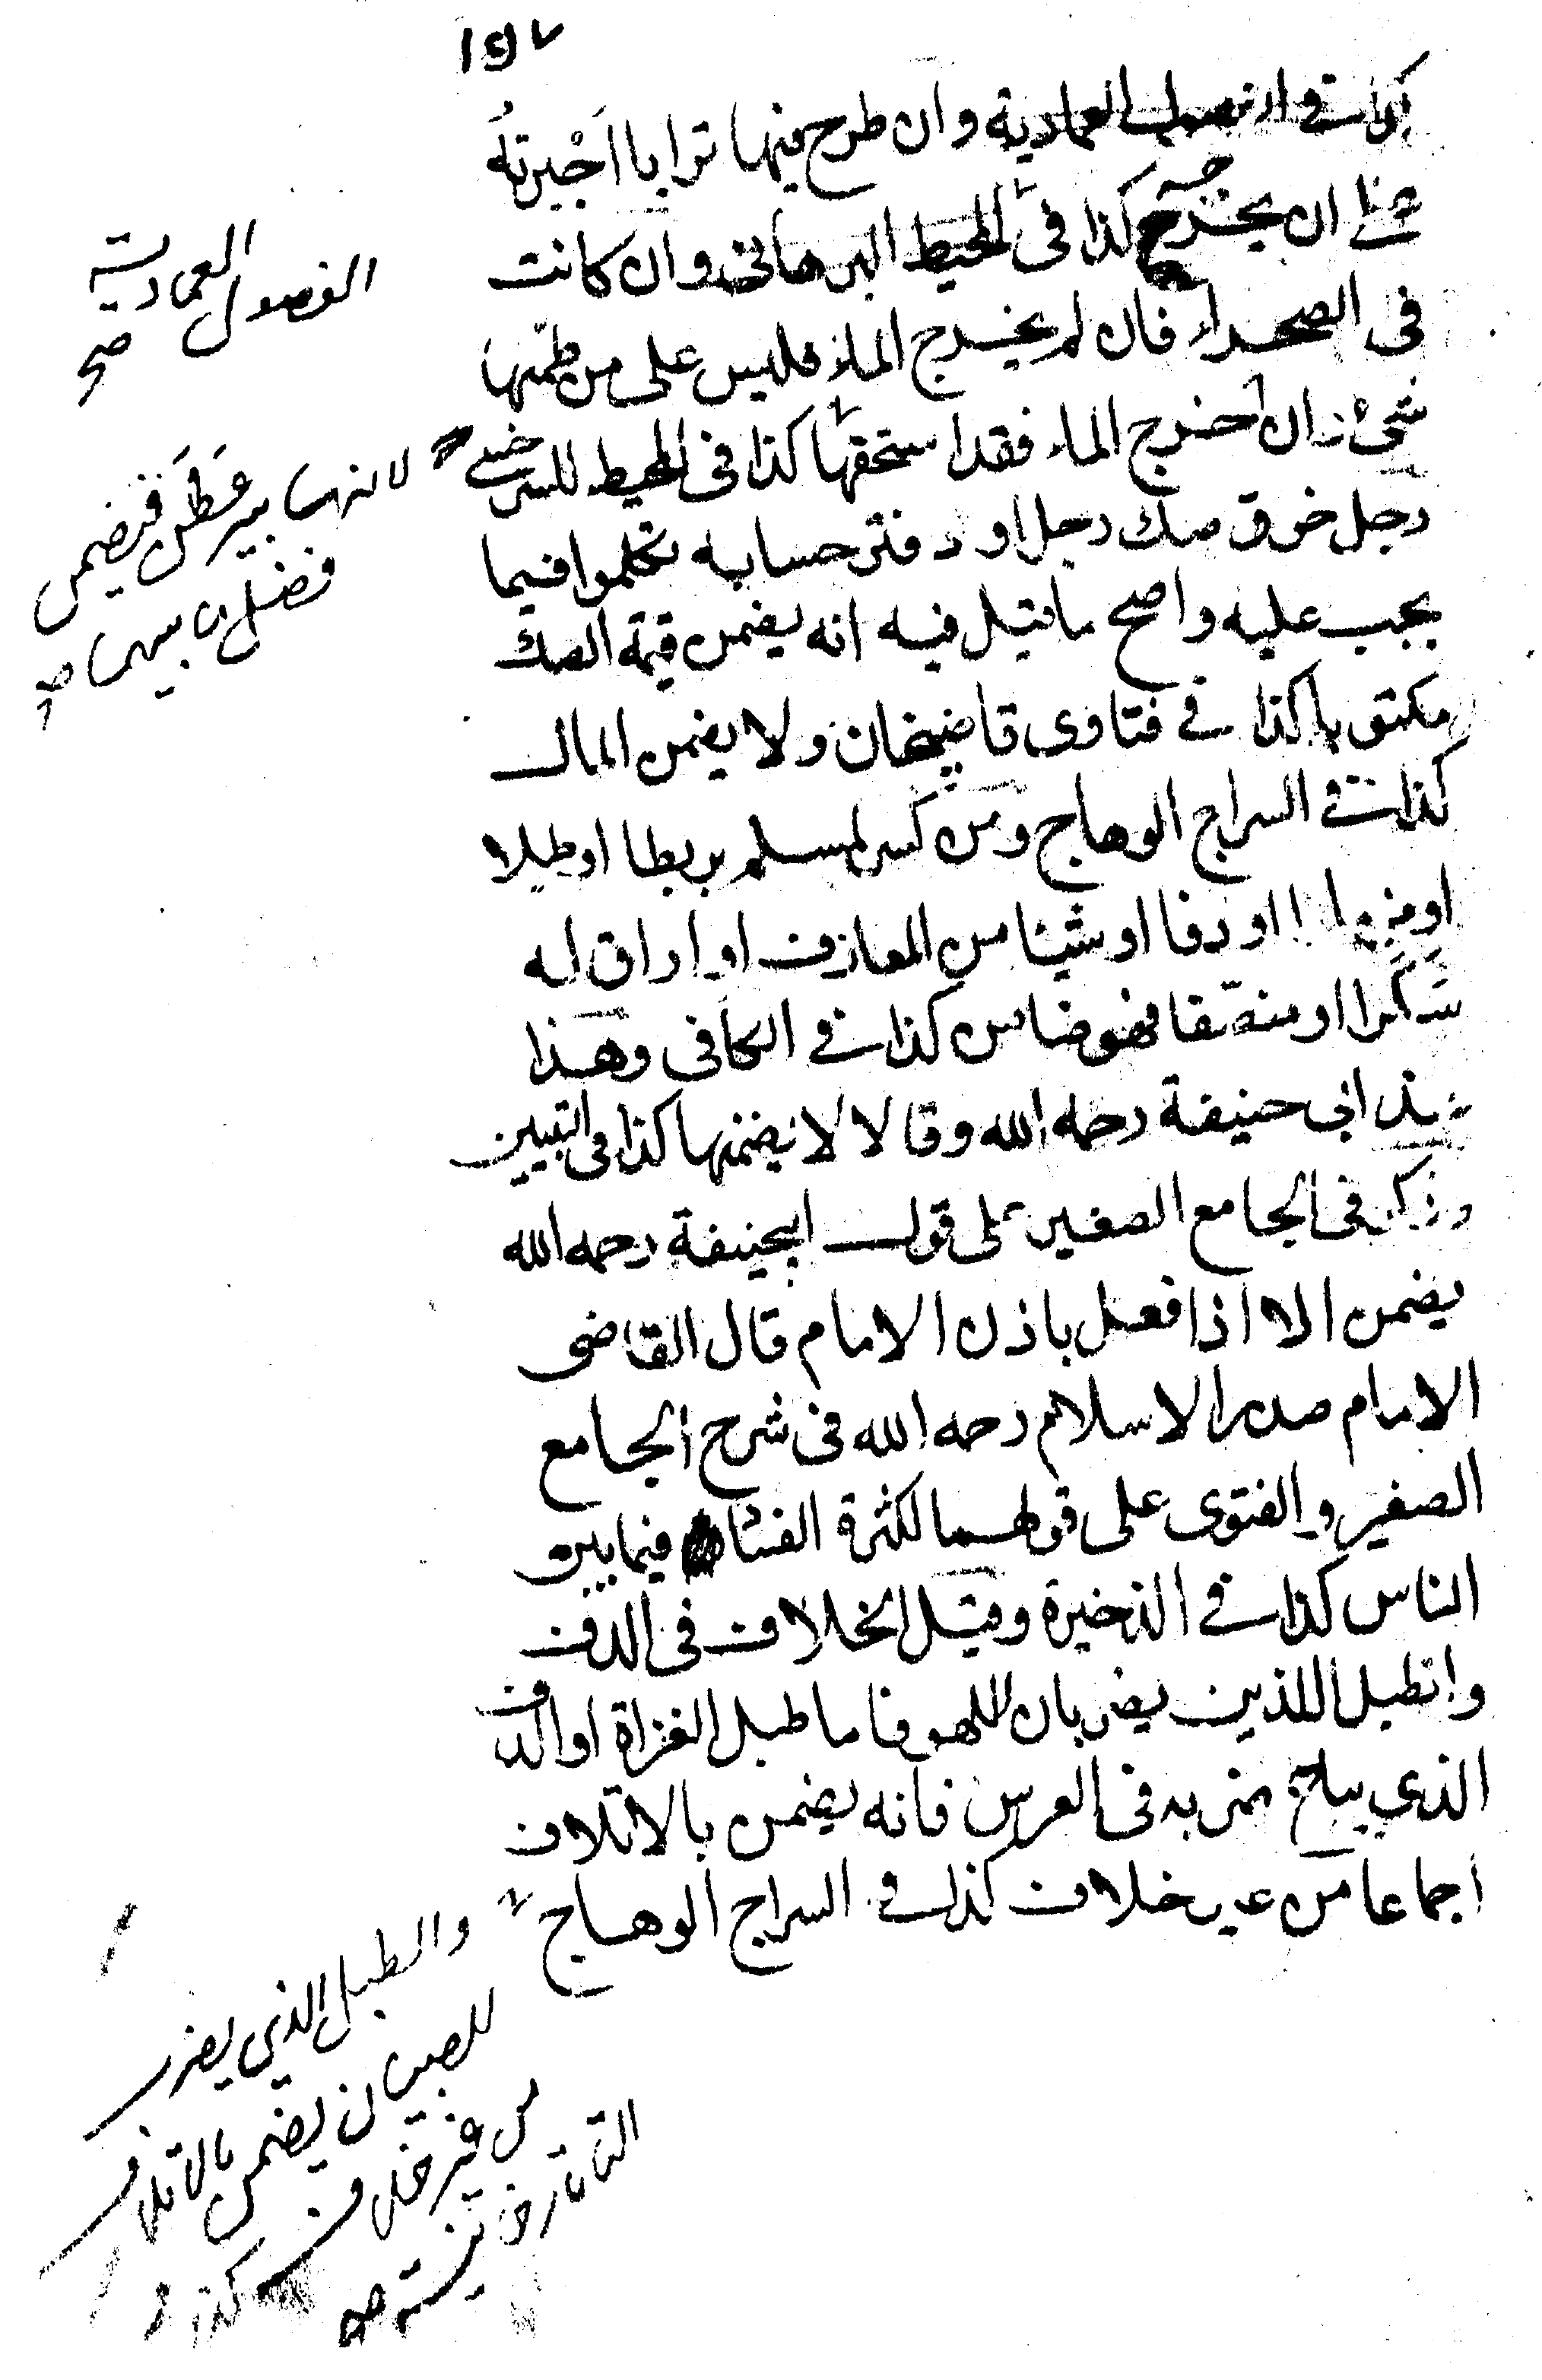 ١٩٧
كذا في الفصول العمادية وان طرح فيها ترابا اَجْبرتهُ
على ان يخرج كذا فى المحيط البرهانى وان كانت
فى الصحراء فان لم يخرج الماء فليس على من طمها
شئ وان اخرج الماء فقد استحقها كذا فى المحيط للسرخسى
رجل خرق صك رجل او دفتر حسابه تكلموا فيما
يجب عليه واصح ما قيل فيه انه يضمن قيمة الصك
مكتوبا كذا في فتاوى قاضيخان ولا يضمن المال
كذا في السراج الوهاج ومن كسر لمسلم بربطا او طبلا
او مزمارا او دفا او شيئا من المعازف او اراق له
سَكَرا او منصّفا فهو ضامن كذا في الكافى وهذا
عند ابى حنيفة رحمه الله وقالا لا يضمنها كذا فى التبيين
وذكر فى الجامع الصغير على قول ابيحنيفة رحمه الله
يضمن الا اذا فعل باذن الامام قال القاضى
الامام صدر الاسلام رحمه الله فى شرح الجامع
الصغير والفتوى على قولهما لكثرة الفساد فيما بين
الناس كذا في الذخيرة وقيل الخلاف فى الدف
والطبل اللذين يضربان للهو فاما طبل الغزاة او الدف
الذي يباح ضربه فى العرس فانه يضمن بالاتلاف
اجماعا من غير خلاف كذا في السراج الوهاج
الفصول العمادية
صح
لانها بير
فيضمن
فضل ما بينهما صح
والطبل الذي يضرب
للصبيان يضمن بالاتلاف
من غير خلاف كذا في
التاتارخانية صح